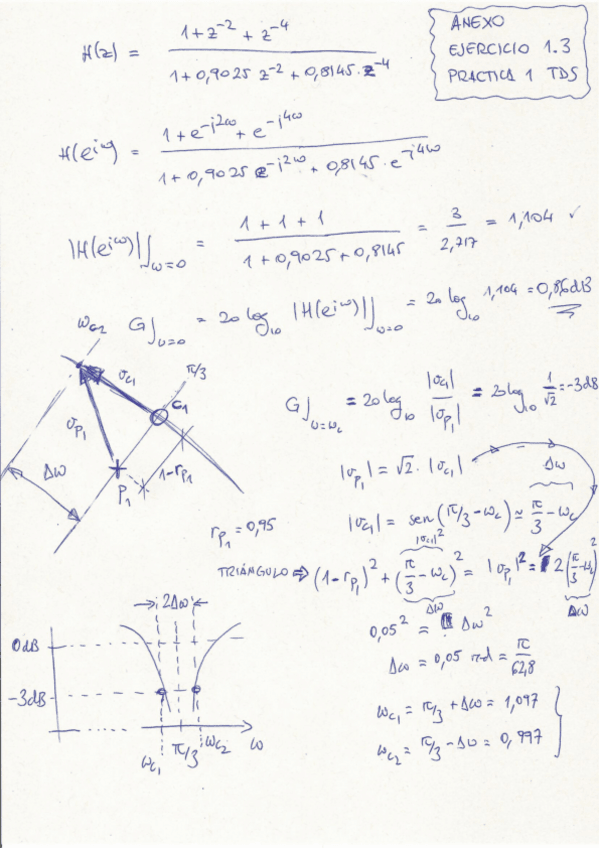 ANEXO
EJERCICIO 1.3
PRACTICA 1 TDS
H(z) = (1+z^-2 + z^-4) / (1+0,9025 z^-2 + 0,8145·z^-4)
H(e^jω) = (1+e^-j2ω + e^-j4ω) / (1+0,9025 e^-j2ω + 0,8145·e^-j4ω)
|H(e^jω)|]ω=0 = (1+1+1) / (1+0,9025+0,8145) = 3/2,717 = 1,104 ✓
G]ω=0 = 20 log10 |H(e^jω)|]ω=0 = 20 log10 1,104 = 0,86dB
ωc2
π/3
σc1
C1
σp1
Δω
P1
1-rp1
rp1 = 0,95
G]ω=ωc = 20 log10 |σc1|/|σp1| = 20 log10 1/√2 = -3dB
|σp1| = √2 · |σc1|
Δω
|σc1| = sen(π/3 - ωc) ≃ π/3 - ωc
|σc1|²
TRIÁNGULO ⇒ (1-rp1)² + (π/3 - ωc)² = |σp1|² = 2(π/3 - ωc)²
Δω
Δω
0,05² = Δω²
Δω = 0,05 rad = π/62,8
ωc1 = π/3 + Δω = 1,097
ωc2 = π/3 - Δω = 0,997
2Δω
0dB
-3dB
ωc1
π/3
ωc2
ω